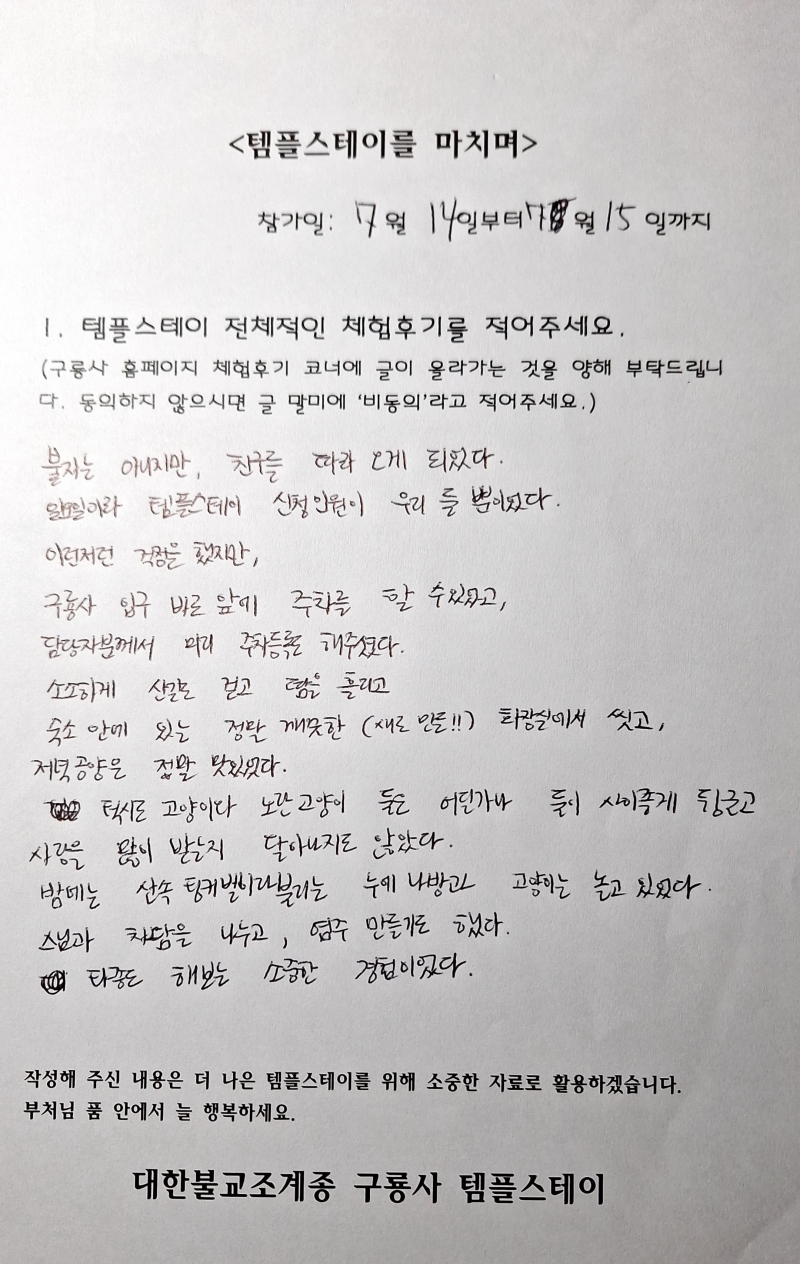 <템플스테이를 마치며>
참가일: 7월 14일부터 7월 15일까지
1. 템플스테이 전체적인 체험후기를 적어주세요.
(구룡사 홈페이지 체험후기 코너에 글이 올라가는 것을 양해 부탁드립니
다. 동의하지 않으시면 글 말미에 '비동의'라고 적어주세요.)
불자는 아니지만, 친구를 따라 오게 되었다.
일요일이라 템플스테이 신청인원이 우리 둘 뿐이었다.
이런저런 걱정을 했지만,
구룡사 입구 바로 앞에 주차를 할 수 있었고,
담당자분께서 미리 주차등록도 해주셨다.
소소하게 산길도 걷고 땀을 흘리고
숙소 안에 있는 정말 깨끗한 (새로 만든!!) 화장실에서 씻고,
저녁공양은 정말 맛있었다.
턱시도 고양이다 노란고양이 둘은 어딘가나 둘이 사이좋게 뒹굴고
사랑을 많이 받는지 달아나지도 않았다.
밤에는 산속 팅커벨이라불리는 누에나방과 고양이는 놀고 있었다.
스님과 차담을 나누고, 염주 만들기도 했다.
타종도 해보는 소중한 경험이었다.
작성해 주신 내용은 더 나은 템플스테이를 위해 소중한 자료로 활용하겠습니다.
부처님 품 안에서 늘 행복하세요.
대한불교조계종 구룡사 템플스테이